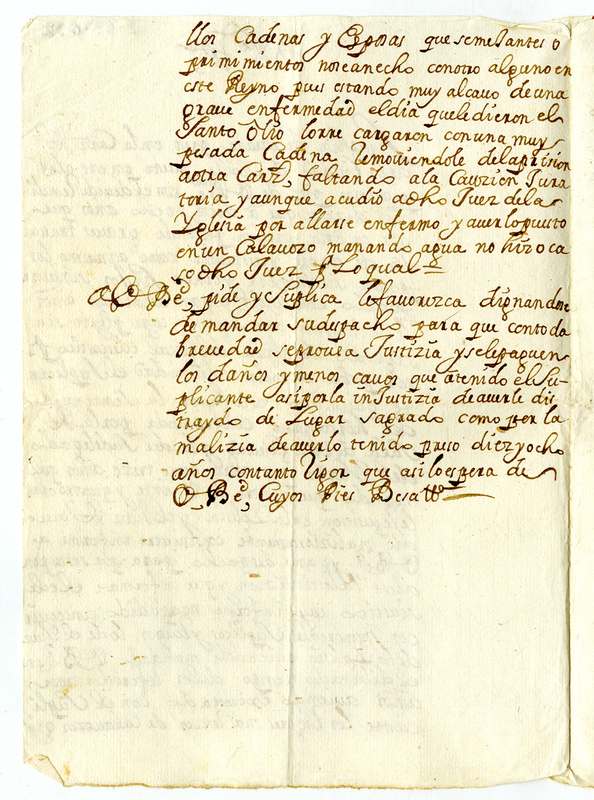 llos Cadenas y Esposas que semejantes o
primimientos nose an echo conotro alguno en
este Reyno pues estando muy al cavo de una
grave enfermedad el dia que le dieron el
Santo Olio lorre cargaron con una muy
pesada Cadena, Removiendole de la prision
aotra Carz, faltando a la Cauzien Jura
toria y aunque acudio adho Juez de la
Yglesia por allarse enfermo y averlo puesto
en un Calavozo manando agua no hizo ca
so dho Juez Lo qual
pide y Suplica le favorezca dignandose
de mandar sudespacho para que con toda
brevedad se provea Justizia y se le paguen
los daños y menos cavos que a tenido el Su-
plicante asi por la inJustizia de averle dis
traydo de Lugar sagrado como por la
malizia de averlo tenido preso diez y ocho
años con tanto Rigor que asi lo espera de
Cuyos Pies Besa